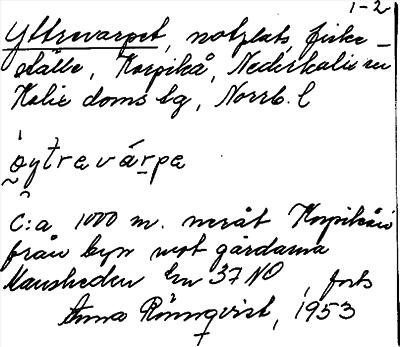 1-2
Yttrevarpet, notplats, fiske-
ställe, Korpikå, Nederkalix sn
Kalix doms.lg, Norrb. l
ọytrevárpe
C:a 1000 m. neråt Korpikån
från byn mot gårdarna
Mansheden En 37 NO, forts
Anna Rönnqvist, 1953